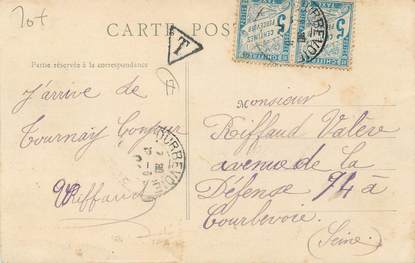 70+
CARTE POST
T
5
CENTIMES
A PERCEVOIR
5
COURBEVOIE
Partie réservée à la correspondance
J'arrive de
Tournay Bonjour
Riffaud
COURBEVOIE
Monsieur
Riffaud Valère
avenue de la
Défense 94 à
Courbevoie
(Seine)